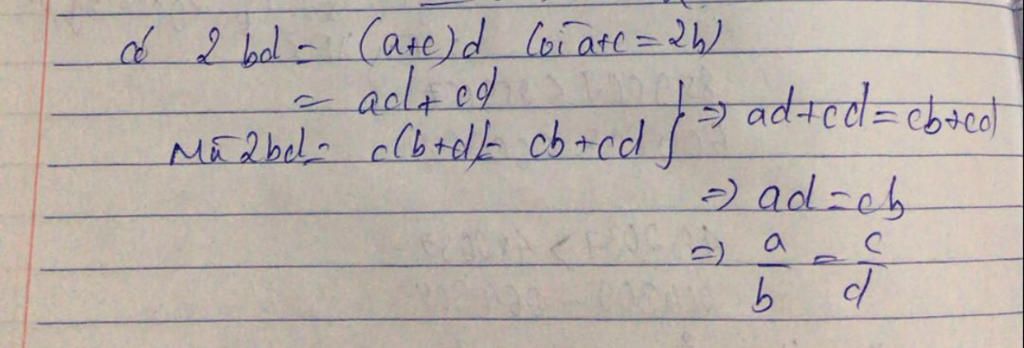 có 2bd = (a+c)d (vì a+c = 2b)
= ad + cd
Mà 2bd = c(b+d) = cb + cd } ⇒ ad+cd = cb+cd
⇒ ad = cb
⇒ a/b = c/d